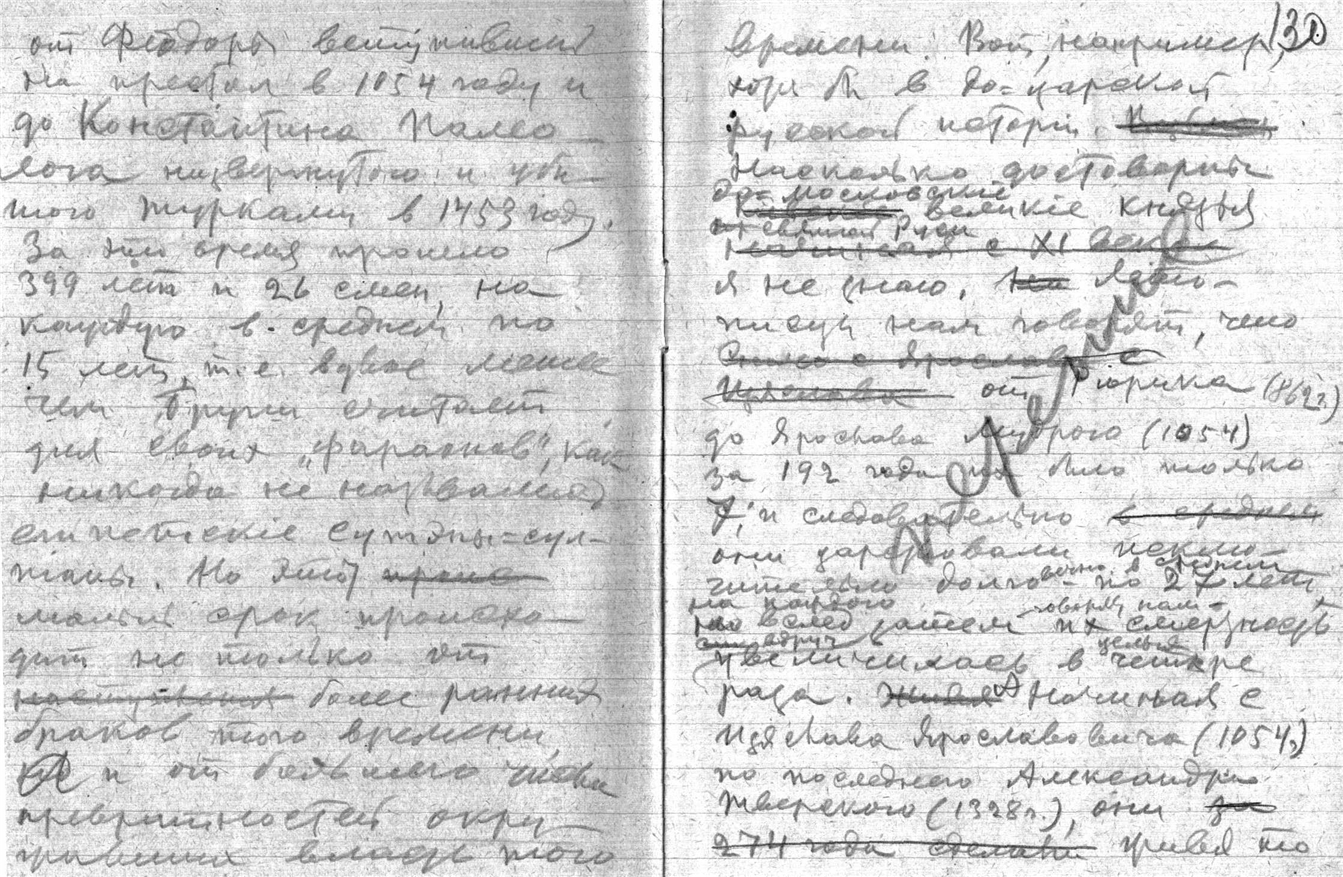 от Феодоры вступившей
на престол в 1054 году и
до Константина Палео-
лога низвергнутого и уби-
того турками в 1453 году.
За это время прошло
399 лет и 26 смен, на
каждую в среднем по
15 лет, т. е. вдвое менее
чем Бругш считает
для своих „фараонов", как
никогда не назывались
египетскіе султаны.
Но этот
малый срок происхо-
дит не только от
более ранних
браков того времени,
и от большего числа
превратностей окру-
жавших власть того
130
времени. Вот, например,
хотя бы в до=царской
русской исторіи.
Насколько достоверны
до=московскіе
великіе князья
Руси
с XI века
я не знаю. Лето-
писцы нам говорят, что
от Рюрика (862 г.)
до Ярослава Мудрого (1054)
за 192 года их было только
7, и следовательно в среднем
они царствовали исклю-
чительно долго по 27 лет
на каждого
вслед затем их смертность
увеличилась в четыре
раза. Начиная с
Изяслава Ярославовича (1054 г.)
по последнего Александра
Тверского (1328 г.), они за
274 года сделали